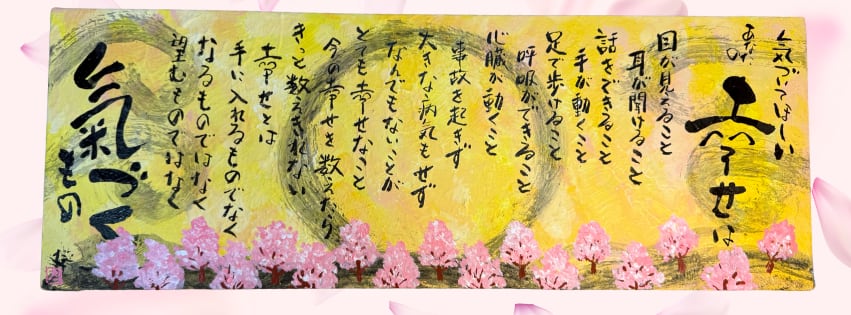 気づいてほしい
あなたの
幸せは
目が見えること
耳が聞けること
話をできること
手が動くこと
足で歩けること
呼吸ができること
心臓が動くこと
事故を起きず
大きな病気もせず
なんでもないことが
とても幸せなこと
今の幸せを数えたら
きっと数えきれない
幸せとは
手に入れるものでなく
なるものではなく
望むものではなく
氣づく
もの